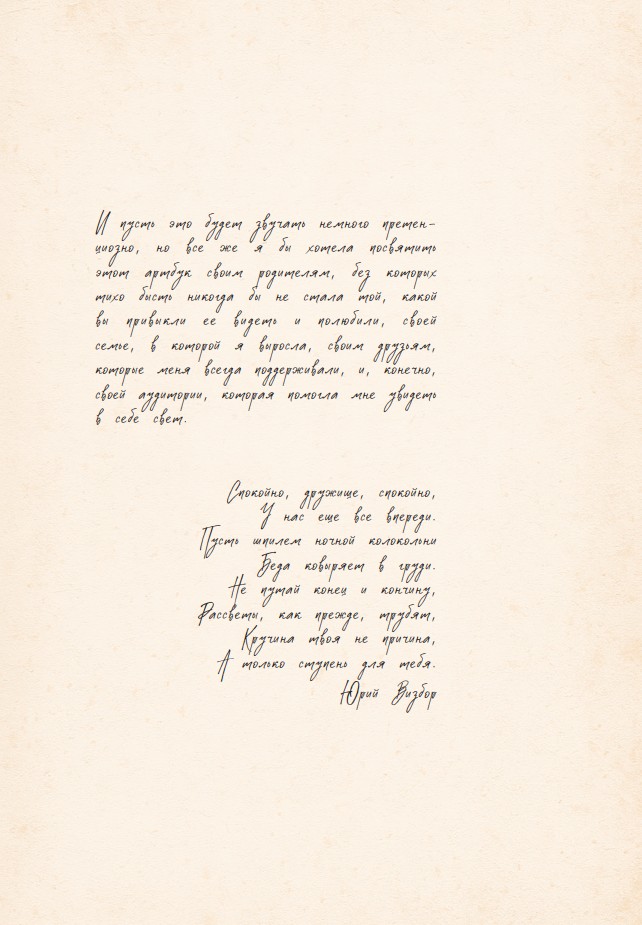 И пусть это будет звучать немного претен-
циозно, но все же я бы хотела посвятить
этот артбук своим родителям, без которых
тихо бысть никогда бы не стала той, какой
вы привыкли ее видеть и полюбили, своей
семье, в которой я выросла, своим друзьям,
которые меня всегда поддерживали, и, конечно,
своей аудитории, которая помогла мне увидеть
в себе свет.
Спокойно, дружище, спокойно,
У нас еще все впереди.
Пусть шпилем ночной колокольни
Беда ковыряет в груди.
Не путай конец и кончину,
Рассветы, как прежде, трубят,
Кручина твоя не причина,
А только ступень для тебя.
Юрий Визбор